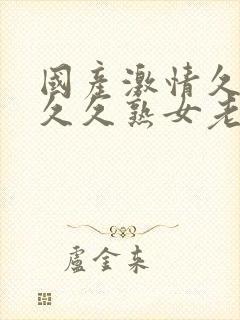 國產激情久
久久熟女老
盧金来